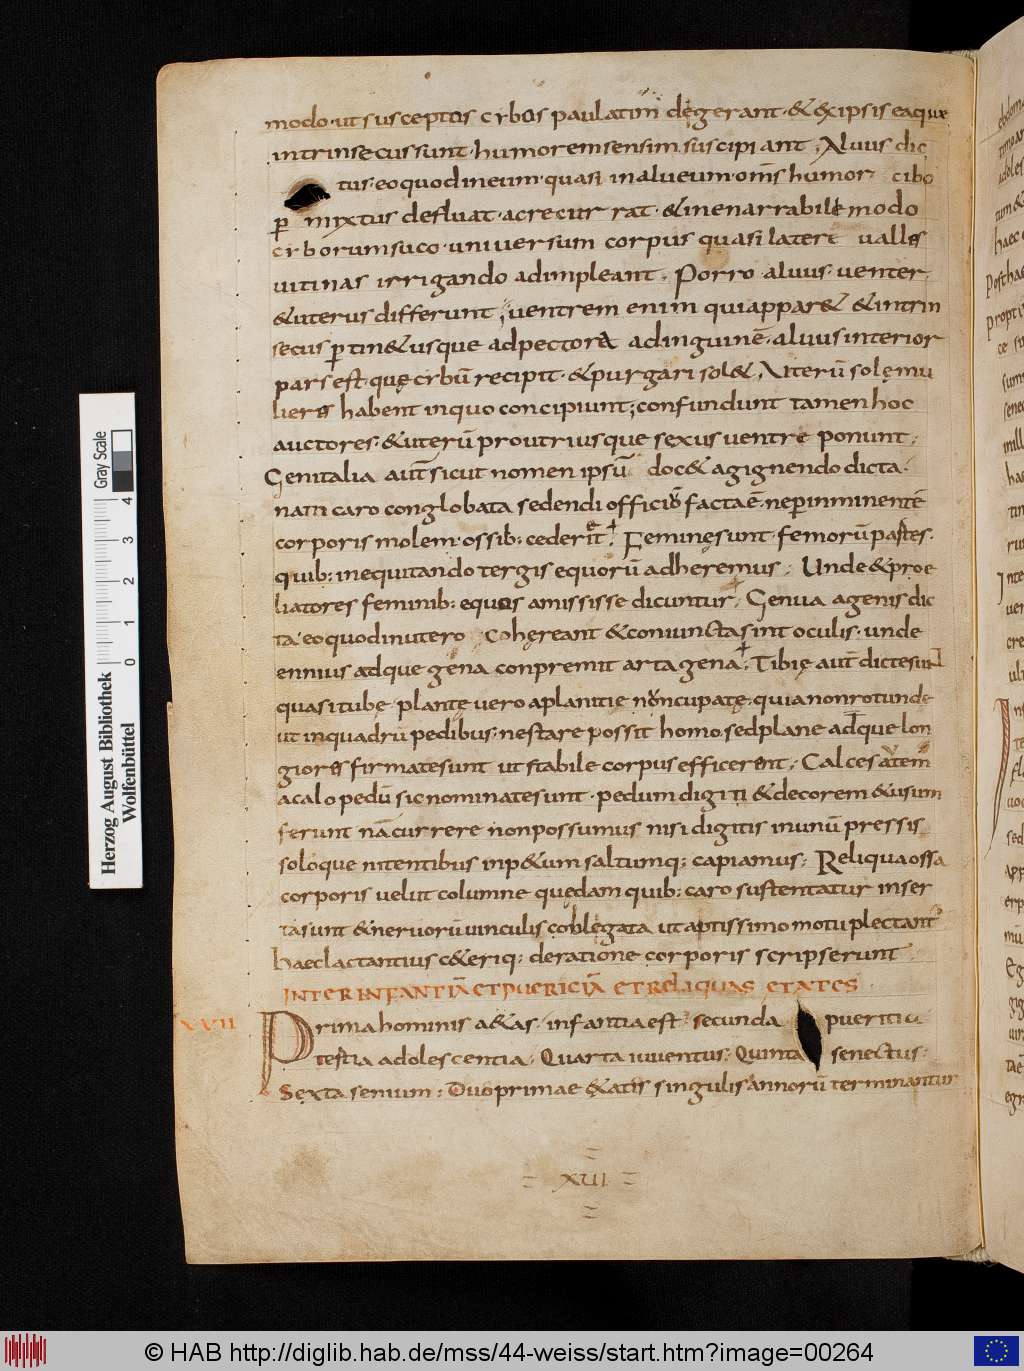 modo · ut susceptos cybos paulatim degerant · & ex ipsis ea que
intrinsecus sunt · humorem sensim suscipiant ; Aluus dic
tus · eo quod in eum · quasi in alueum · om̄s humor cibo
p̱ mixtus defluat · ac recurrat · & inenarrabile modo
cyborum suco · uniuersum corpus quasi latere ualles
uitinas irrigando adimpleant . Porro aluus · uenter ·
& uterus differunt ; uentrem enim qui appar& & intrin
secus p̱tin& usque ad pectora ad inguinē · aluus interior
pars est · quę cybū recipit · & purgari sol& , Uterū solę mu
lieres habent in quo concipiunt ; confundunt tamen hoc
auctores · & uterū pro utriusque sexus uentre ponunt ;
Genitalia aut̄ sicut nomen ipsū doc& a gignendo dicta ·
nam caro conglobata sedendi officio facta ē · ne p̱ inminentē
corporis molem · ossib: cederet . Feminę sunt · femorū partes ·
quib: in equitando tergis equorū adheremus ; Unde & proe
liatores feminib: equos amississe dicuntur ; Genua a genis dic
ta · eo quod in utero cohęreant & coniuncta sint oculis · unde
ennius adque gena conpremit arta gena ; Tibię aut̄ dictę sunt
quasi tubę plantę uero a planitie noncupatę · quia non rotunde
ut in quadrū pedibus · ne stare possit homo sed plane adque lon
giores firmate sunt ut stabile corpus efficerent ; Calces autem
a calo pedū sic nominate sunt · pedum digiti & decorem & usum
ferunt nā currere non possumus nisi digitis in unū pressis
soloque nitentibus inp&um saltumq; capiamus ; Reliqua ossa
corporis uelut columne quędam quib: caro sustentatur inser
ta sunt & neruorū uinculis conlegata ut aptissimo motu plectant
haec lactantius c&eriq; de ratione corporis scripserunt .
INTER INFANTIĀ ET PUERICIĀ ET RELIQUAS ETATES .
XVII Prima hominis a&as · infantia est · secunda pueritia
testia adolescentia . Quarta iuuentus . Quinta senectus .
Sexta senium ; Duo primae &atis singulis annorū terminantur
XUI
Herzog August Bibliothek
Wolfenbüttel
Gray Scale
0 1 2 3 4
© HAB http://diglib.hab.de/mss/44-weiss/start.htm?image=00264